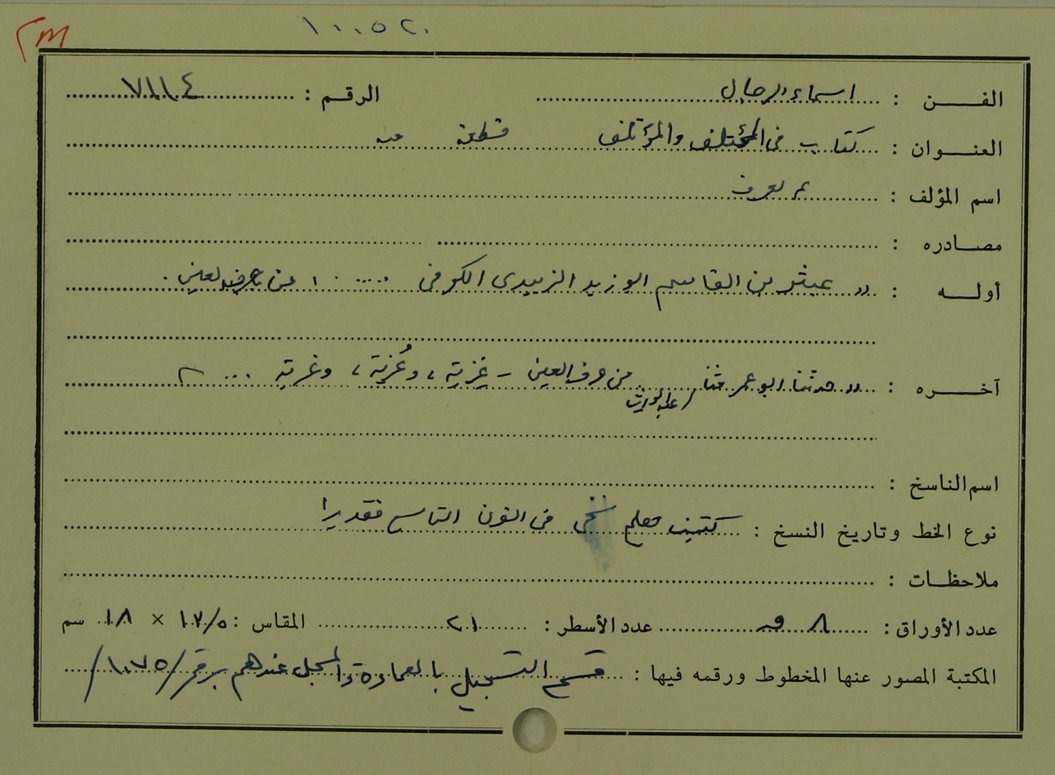 ١٠٠٥٢٠
الفـــن : اسماء الرجال الرقم : ٧١١٤
العنـــوان : كتاب في المختلف والمؤتلف قطعة منه
اسم المؤلف : لم يعرف
مصـــادره :
أولـــه : " عبثر بن القاسم ابو زبيد الزبيدي الكوفي ....... من حرف العين .
آخـــره : " حدثنا ابو عمر ثنا عبد الوارث من حرف العين - غزية ، وعُزية ، وغرية ...
اسم الناسخ :
نوع الخط وتاريخ النسخ : كتبت بقلم نسخي في القرن التاسع تقديرا
ملاحظات :
عدد الأوراق : ٨ ق عدد الأسطر : ٢١ المقاس : ١٧/٥ × ١٨ سم
المكتبة المصور عنها المخطوط ورقمه فيها : قسم التسجيل بالعمادة والمسجل عندهم برقم / ١٠٧٥ /